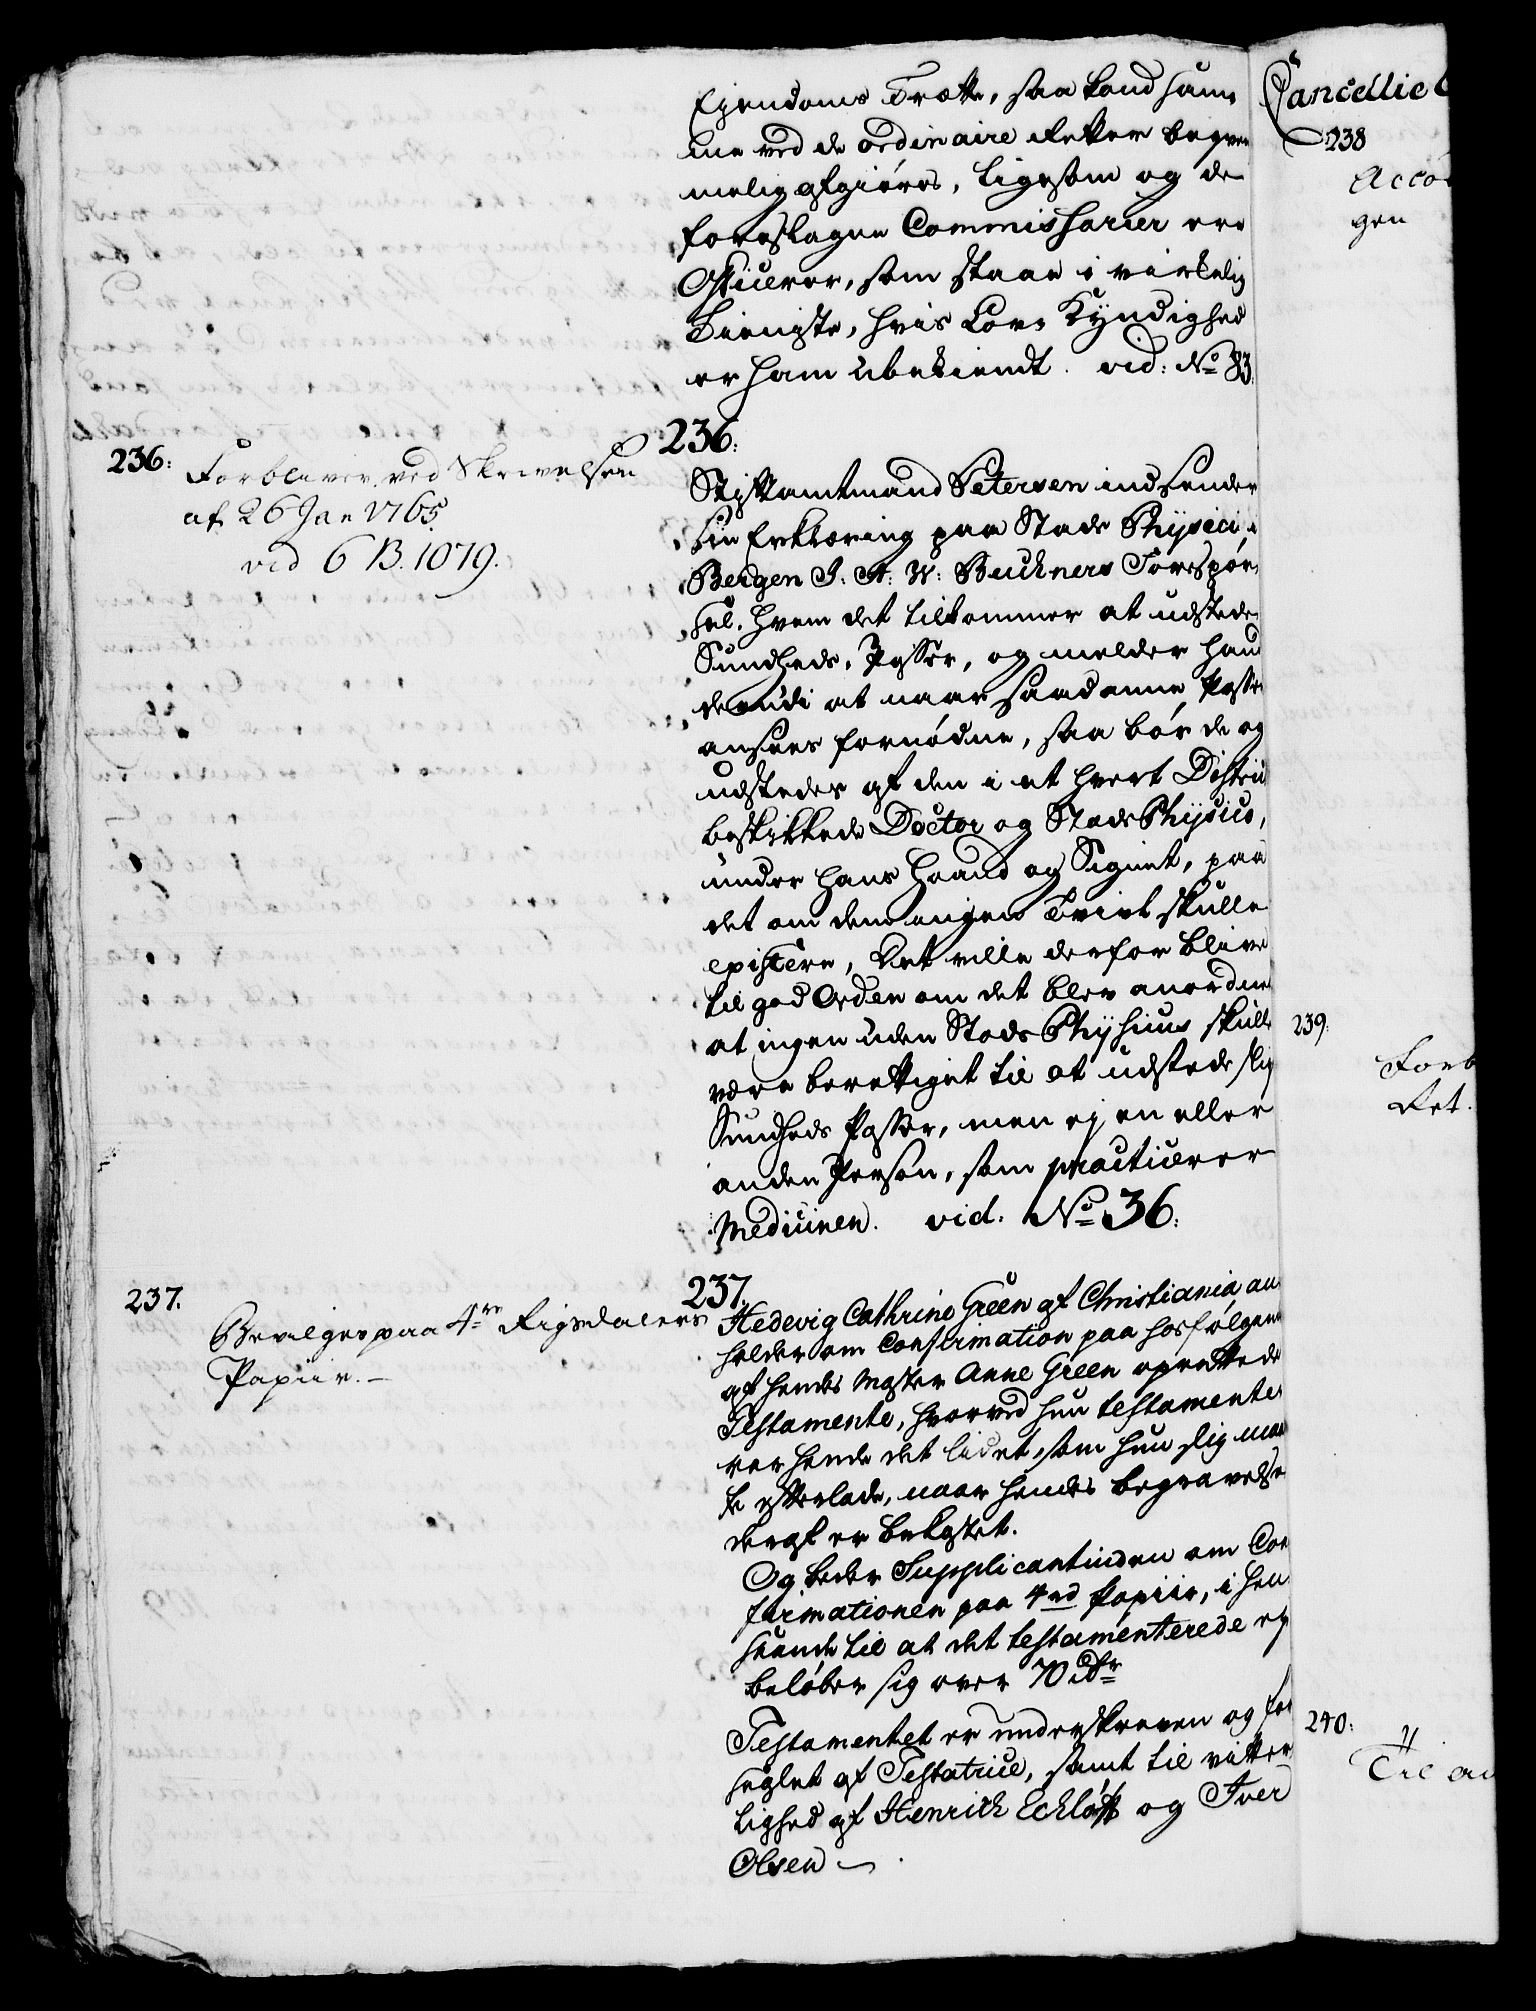 Ejendoms Trætte, saa kand sam¬
me ved de ordinaire Retter beqvem
melig afgiøres, ligesom og de
foreslagne Commissarier ere
Officerer, som staae i virkelig
Tieniste, hvis Lov-Kyndighed
er ham ubekiendt. vid: No 83.
236:
Forbliver ved Skrivelsen
af 26 Jan 1765.
vid 6 B. 1079.
236:
Stiftamtmand Petersen indsender
sin Erklæring paa Stads Physici i
Bergen J: A: W: Buchners Forespør¬
sel, hvem det tilkommer at udstede
Sundheds-Passer, og melder hand
derudi at naar saadanne Passer
ansees fornødne, saa bør de og
udstedes af den i et hvert District
beskikkede Doctor og Stads Physico,
under hans Haand og Signet, paa
det om dem ingen Tvivl skulle
existere, Det ville derfor blive
til god Orden om det blev anordnet
at ingen uden Stads Physicus skulle
være berettiget til at udstede slig
Sundheds Passer, men ej en eller
anden Person, som practicerer
Medicinen. vid. No 36.
237.
Bevilges paa 4re Rigsdalers
Papiir.
237.
Hedevig Cathrine Green af Christiania an
holder om Confirmation paa hosfølgende
af hendes Moster Anne Green oprettede
Testamente, hvorved hun testamente
rer hende det lidet, som hun slig maa
te efterlade, naar hendes Begravelse
deraf er bekostet.
Og beder Supplicantinden om Con
firmationen paa 4 rd Papiir, i hen
seende til at det testamenterede ej
beløber sig over 70 Rdr
Testamentet er underskreven og for
seglet af Testatrice, samt til vitter
lighed af Henrich Ecklöff og Iver
Olsen
Cancellie
238
Acco
gen
239.
Forb
Ret.
240.
Til